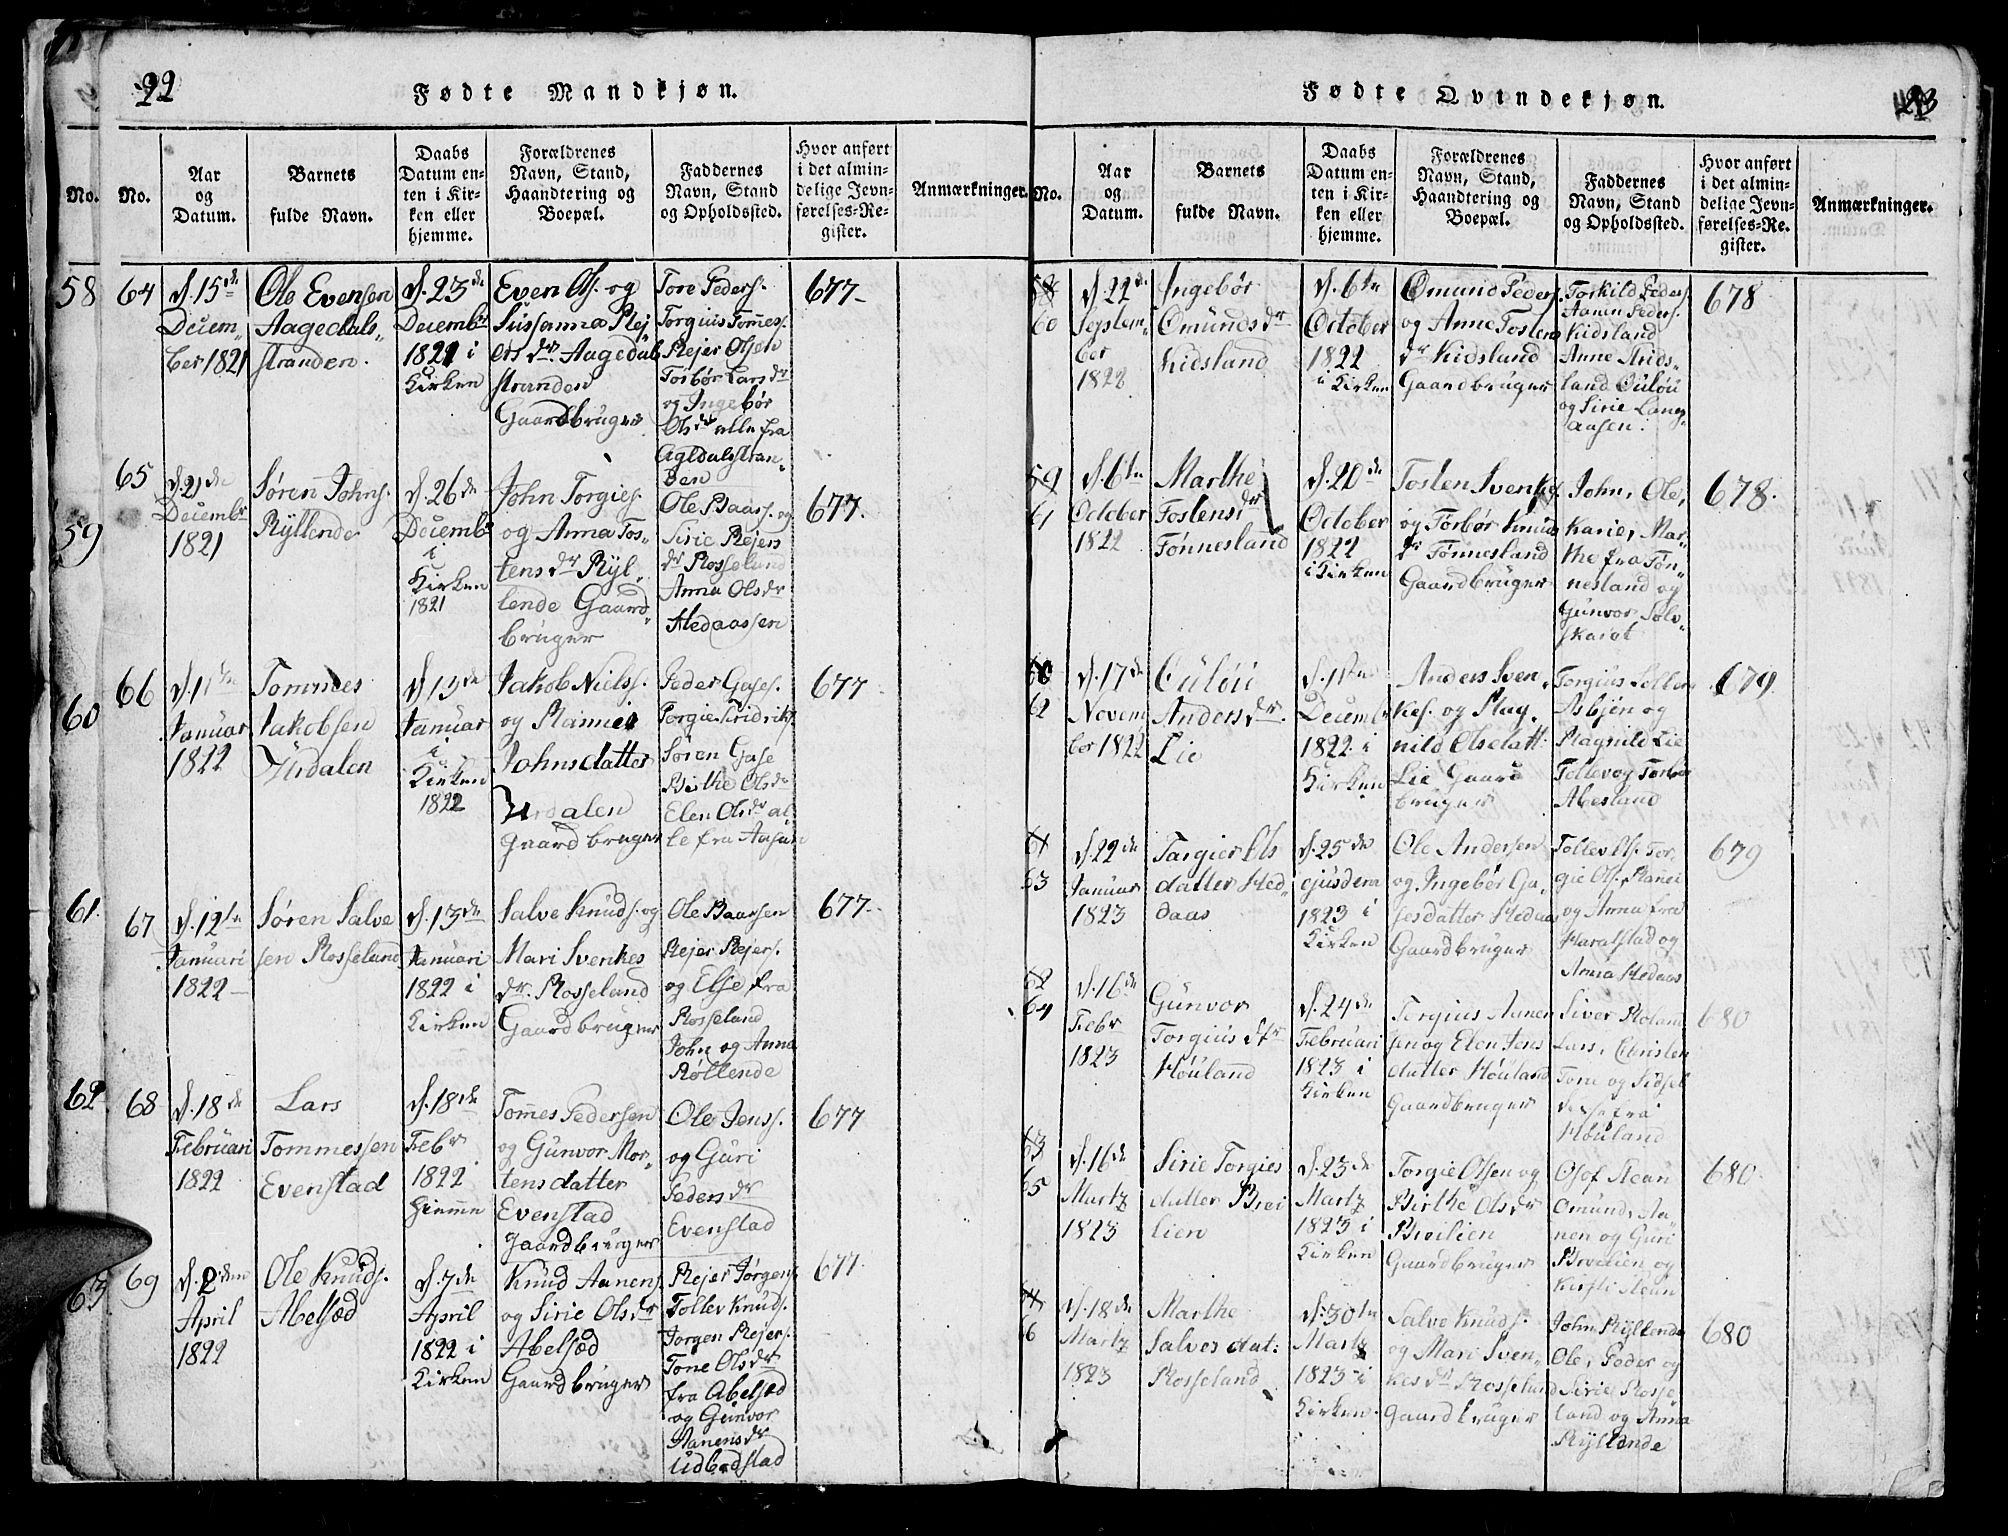 22
Fødte Mandkjøn.
No.
No.
Aar
og
Datum.
Barnets
fulde Navn.
Daabs
Datum en-
ten i Kir-
ken eller
hjemme.
Forældrenes
Navn, Stand,
Haandtering og
Boepæl.
Faddernes
Navn, Stand
og Opholdssted.
Hvor anført
i det almin-
delige Jevn-
førelses-Re-
gister.
Anmærkninger.
58
64
d. 15de
Decem„
ber 1821
Ole Evensen
Aagedals„
stranden.
d. 23de
Decembr
1821 i
Kirken
Even Ols. og
Sussanna Rej
ers dr. Aagedal
stranden
Gaardbruger
Tore Peders.
Torgius Tommes.
Rejer Olsen
Torbør Lars dr
og Ingebør
Ols dr alle fra
Agedalsstran„
den
677-
59
65
d. 21de
Decembr
1821
Søren Johns.
Ryllende
d. 26de
Decembr
i
Kirken
1821
John Torgies.
og Anna Tos„
tens dr Ryl„
lende Gaard„
bruger
Ole Baars. og
Sirie Rejers
dr Rosseland
Anna Ols dr
Hedaassen
677.
60
66
d. 1ste
Januar
1822
Tommes
Jakobsen
Urdalen
d. 13de
Januar
i
Kirken
1822
Jakob Niels.
og Rannei
Johnsdatter
Urdalen
Gaardbruger
Peder Gases.
Torgie
Søren Gase
Birthe Ols dr
Elen Ols dr al„
le fra Aasen
677
61.
67
d. 12te
Januari
1822
Søren Salve
sen Rosseland
d. 13de
Januari
1822 i
Kirken
Salve Knuds. og
Mari Svenkes
dr. Rosseland
Gaardbruger
Ole Baarsen
Rejer Rejers.
og Else fra
Rosseland
John og Anna
Røllende
677.
62
68
d. 18de
Februari
1822
Lars
Tommessen
Evenstad
d. 18de
Febr
1822
Hiemme
Tommes Pedersen
og Gunvor Mor„
tensdatter
Evenstad
Gaardbruger
Ole Jenss.
og Guri
Peders dr
Evenstad
677
63
69
d. 2den
April
1822
Ole Knuds.
Abelsæd
d. 7de
April
1822 i
Kirken
Knud Aanens.
og Sirie Ols dr
Abelsæd
Gaardbruger
Rejer Jørgens.
Tollev Knuds.
Jorgen Rejers.
Tone Ols dr
fra Abelsæd
og Gunvor
Aanens dr
Udbødstad
677
23
Fødte Qvindekjøn.
No.
Aar
og
Datum.
Barnets
fulde Navn.
Daabs
Datum en-
ten i Kir-
ken eller
hjemme.
Forældrenes
Navn, Stand,
Haandtering og
Boepæl.
Faddernes
Navn, Stand
og Opholdssted.
Hvor anført
i det almin-
delige Jevn-
førelses-Re-
gister.
Anmærkninger.
58
60
d. 22de
Septem„
ber
1822
Ingebør
Omunds dr
Kidsland
d. 6te
October
1822
i Kirken
Omund Peders.
og Anne Tostens
dr Kidsland
Gaardbruger
Torkild Peders.
Aanen Peders.
Kidsland
Anne Arids„
land Oulou
og Sirie Lang„
aasen.
678
59
61
d. 6te
October
1822
Marthe
Tostens dr
Tønnesland
d. 20de
October
1822
i Kirken
Tosten Svenkes.
og Torbør Knuds
dr Tønnesland
Gaardbruger
John, Ole,
Karie, Mar„
the fra Tøn„
nesland og
Gunvor Solv„
skaret
678.
60
62
d. 17de
Novem
ber 1822
Oulou
Anders dr.
Lie
d. 1ste
Decembr
1822 i
Kirken
Anders Sven„
kes. og Rag„
nild Olsdatt.
Lie Gaard
bruger
Torgius
Asbjøn og
Ragnild Lie
Tollev og Torbør
Abesland
679
61
63
d. 22de
Januar
1823
Targier Ols
datter Hed„
daas
d. 25de
ejusdem
1823 i
Kirken
Ole Andersen
og Ingebør Ga„
sesdatter Hedaas
Gaardbruger
Tollev Ols. Tor„
gie Ols. Ranei
og Anna fra
Haralstad og
Anna Hedaas
679
62
64
d. 16de
Febr
1823
Gunvor
Torgius dtr
Houland
d. 24de
Februari
1823 i
Kirken
Torgius Aanen
sen og Elen Jens
datter Houland
Gaardbruger
Siver Roland
Lars, Christen
Tone og Sidsel
disse fra
Houland
680
63
65
d. 16de
Martz
1823
Sirie Torgies
datter Brei
lien
d. 23de
Martz
1823 i
Kirken
Torgie Olsen og
Birthe Ols dr
Breilien
Gaardbruger
Olof Aaen
Omund, Aa„
nen og Guri
Breilien og
Kirsti
680.
64
66
d. 18de
Martz
1823
Marthe
Salves dat:
Rosseland
d. 30te
Martz
1823 i
Kirken.
Salve Knuds.
og Mari Sven„
kes dr Rosseland
Gaardbruger
John Ryllende
Ole, Peder og
Sirie Rosse
land og Anna
Ryllende
680